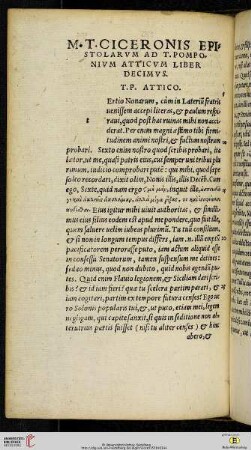 M·T·CICERONIS EPI-
STOLARVM AD T. POMPO-
NIVM ATTICVM LIBER
DECIMVS.
T. P. ATTICO.
Ertio Nonarum, cùm in Laterium fratris
uenissem accepi literas, & paulum respi-
raui, quod post has ruinas mihi non acci-
derat. Per enim magni æstimo tibi firmi-
tudinem animi nostri, & factum nostrum
probari. Sexto enim nostro quod scribis probari, ita
lætor, ut me, quasi patris eius, cui semper uni tribui plu-
rimum, iudicio comprobari putem: qui mihi, quod sæpe
soleo recordari, dixit olim, Nonis illis, illis Decemb. Cum
ego, Sexte, quid nam ergo
Eius igitur mihi uiuit authoritas, &
eius filius eodem est apud me pondere, quo fuit ille,
quem saluere uelim iubeas plurimum. Tu tuum consilium,
& si non in longum tempus differs, iam
pacificatorem perorasse puto, iam actum aliquid esse
in consessu Senatorum, tamen suspensum me detines:
sed eo minus, quod non dubito, quid nobis agendum pu-
tes. Quid enim Flauio legionem, & Siciliam dari scri-
bis? & id iam fieri? quæ tu scelera partim parari, &
iam cogitari, partim ex tempore futura censes? Ego ue-
ro Solonis popularis tui, &, ut puto, etiam mei, legem
negligam, qui capite sanxit, si quis in seditione non al-
terutrius partis fuisset (nisi tu aliter censes) & hinc
abero, &